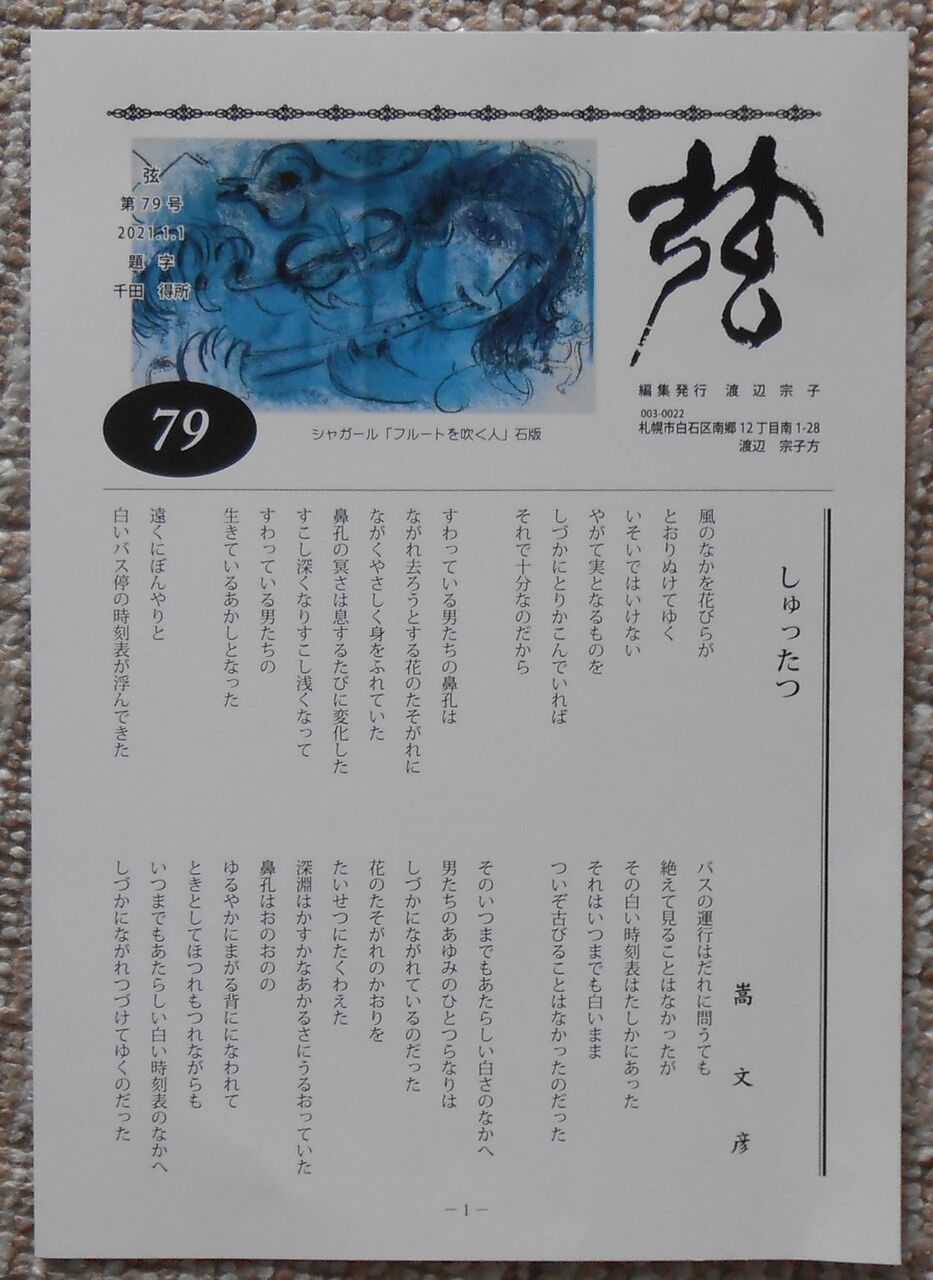 弦
第79号
2021.1.1
題字
千田 得所
79
シャガール「フルートを吹く人」石版
弦
編集発行 渡辺宗子
003-0022
札幌市白石区南郷12丁目南1-28
渡辺 宗子方
しゅったつ
嵩 文彦
風のなかを花びらが
とおりぬけてゆく
いそいではいけない
やがて実となるものを
しづかにとりかこんでいれば
それで十分なのだから
すわっている男たちの鼻孔は
ながれ去ろうとする花のたそがれに
ながくやさしく身をふれていた
鼻孔の冥さは息するたびに変化した
すこし深くなりすこし浅くなって
すわっている男たちの
生きているあかしとなった
遠くにぼんやりと
白いバス停の時刻表が浮んできた
バスの運行はだれに問うても
絶えて見ることはなかったが
その白い時刻表はたしかにあった
それはいつまでも白いまま
ついぞ古びることはなかったのだった
そのいつまでもあたらしい白さのなかへ
男たちのあゆみのひとつらなりは
しづかにながれているのだった
花のたそがれのかおりを
たいせつにたくわえた
深淵はかすかなあかるさにうるおっていた
鼻孔はおのおのの
ゆるやかにまがる背にになわれて
ときとしてほつれもつれながらも
いつまでもあたらしい白い時刻表のなかへ
しづかにながれつづけてゆくのだった
－1－